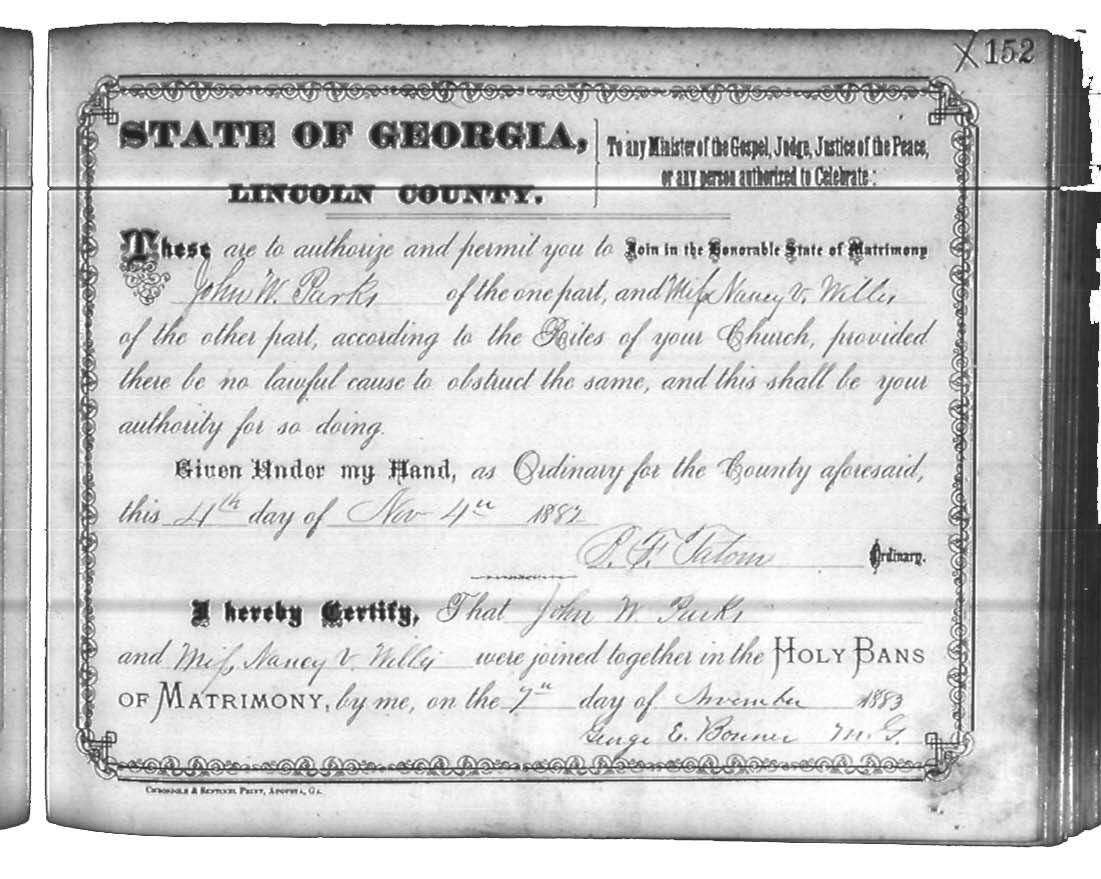 X 152
STATE OF GEORGIA,
LINCOLN COUNTY.
To any Minister of the Gospel, Judge, Justice of the Peace,
or any person authorized to Celebrate:
These are to authorize and permit you to Join in the Honorable State of Matrimony
John W. Parks of the one part, and Miss Nancy V. Willis
of the other part, according to the Rites of your Church, provided
there be no lawful cause to obstruct the same, and this shall be your
authority for so doing.
Given Under my Hand, as Ordinary for the County aforesaid,
this 4th day of Nov 4th 1882
F. Tatom Ordinary.
I hereby Certify, That John W. Parks
and Miss Nancy V. Willis were joined together in the HOLY BANS
OF MATRIMONY, by me, on the 7th day of November 1883
George E. Bonner M. G.
CHRONICLE & SENTINEL PRINT, AUGUSTA, GA.